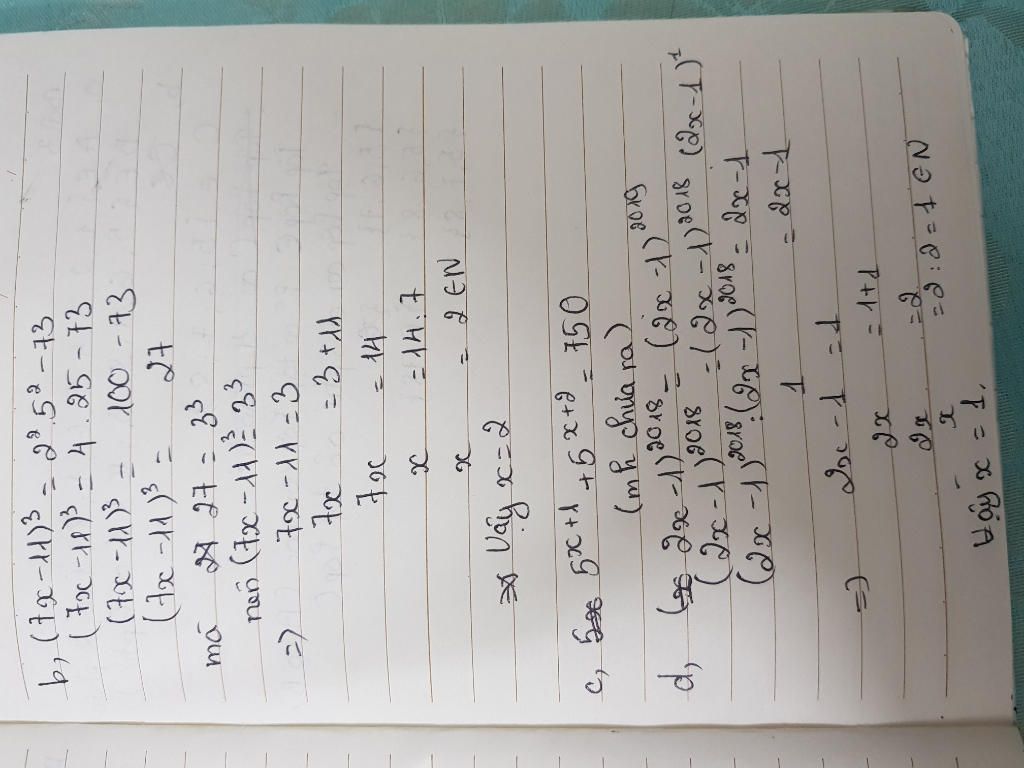 b, (7x-11)³ = 2².5² -73
(7x-11)³ = 4.25-73
(7x-11)³ = 100-73
(7x-11)³ = 27
mà 27 = 3³
nên (7x-11)³ = 3³
=> 7x-11 = 3
7x = 3+11
7x = 14
x = 14:7
x = 2 ∈ N
Vậy x = 2
c, 5x+1 + 5x+2 = 750
(mk chưa ra)
d, (2x-1)²⁰¹⁸ = (2x-1)²⁰¹⁹
(2x-1)²⁰¹⁸ = (2x-1)²⁰¹⁸ (2x-1)¹
(2x-1)²⁰¹⁸:(2x-1)²⁰¹⁸ = 2x-1
1 = 2x-1
=> 2x-1 = 1
2x = 1+1
2x = 2
x = 2:2 = 1 ∈ N
Vậy x = 1.